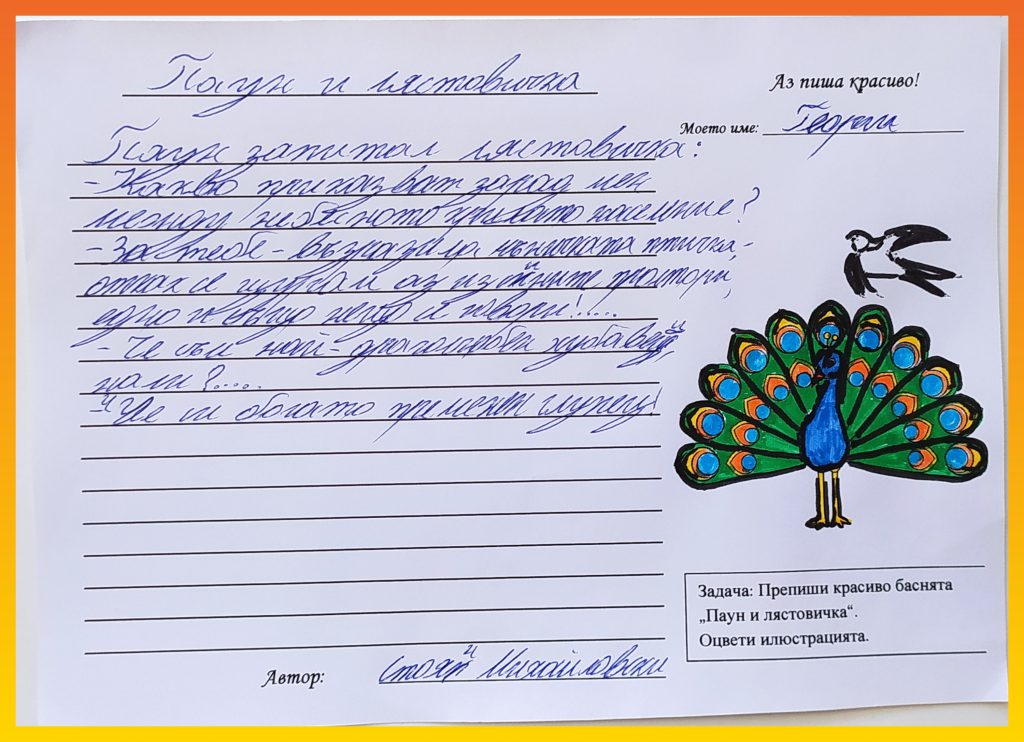 Паун и лястовичка
Аз пиша красиво!
Моето име: Георги
Паун запитал лястовичка:
- Какво приказват зарад мен
между небесното крилато население?
- За тебе - възразила мъничката птичка, -
откак се щурам аз из сините простори,
едно и също нещо се говори!.....
- Че съм най-драголюбен хубавец,
нали?.....
- Че си богато пременен глупец!
Автор: Стоян Михайловски
Задача: Препиши красиво баснята
„Паун и лястовичка“.
Оцвети илюстрацията.